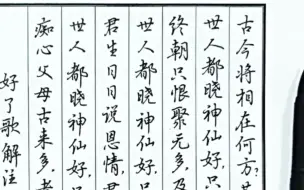 古今将相在何方？
世人都晓神仙好，只
终朝只恨聚无多，及
世人都晓神仙好，只
君生日日说恩情，君
世人都晓神仙好，只
痴心父母古来多，孝
好了歌解注